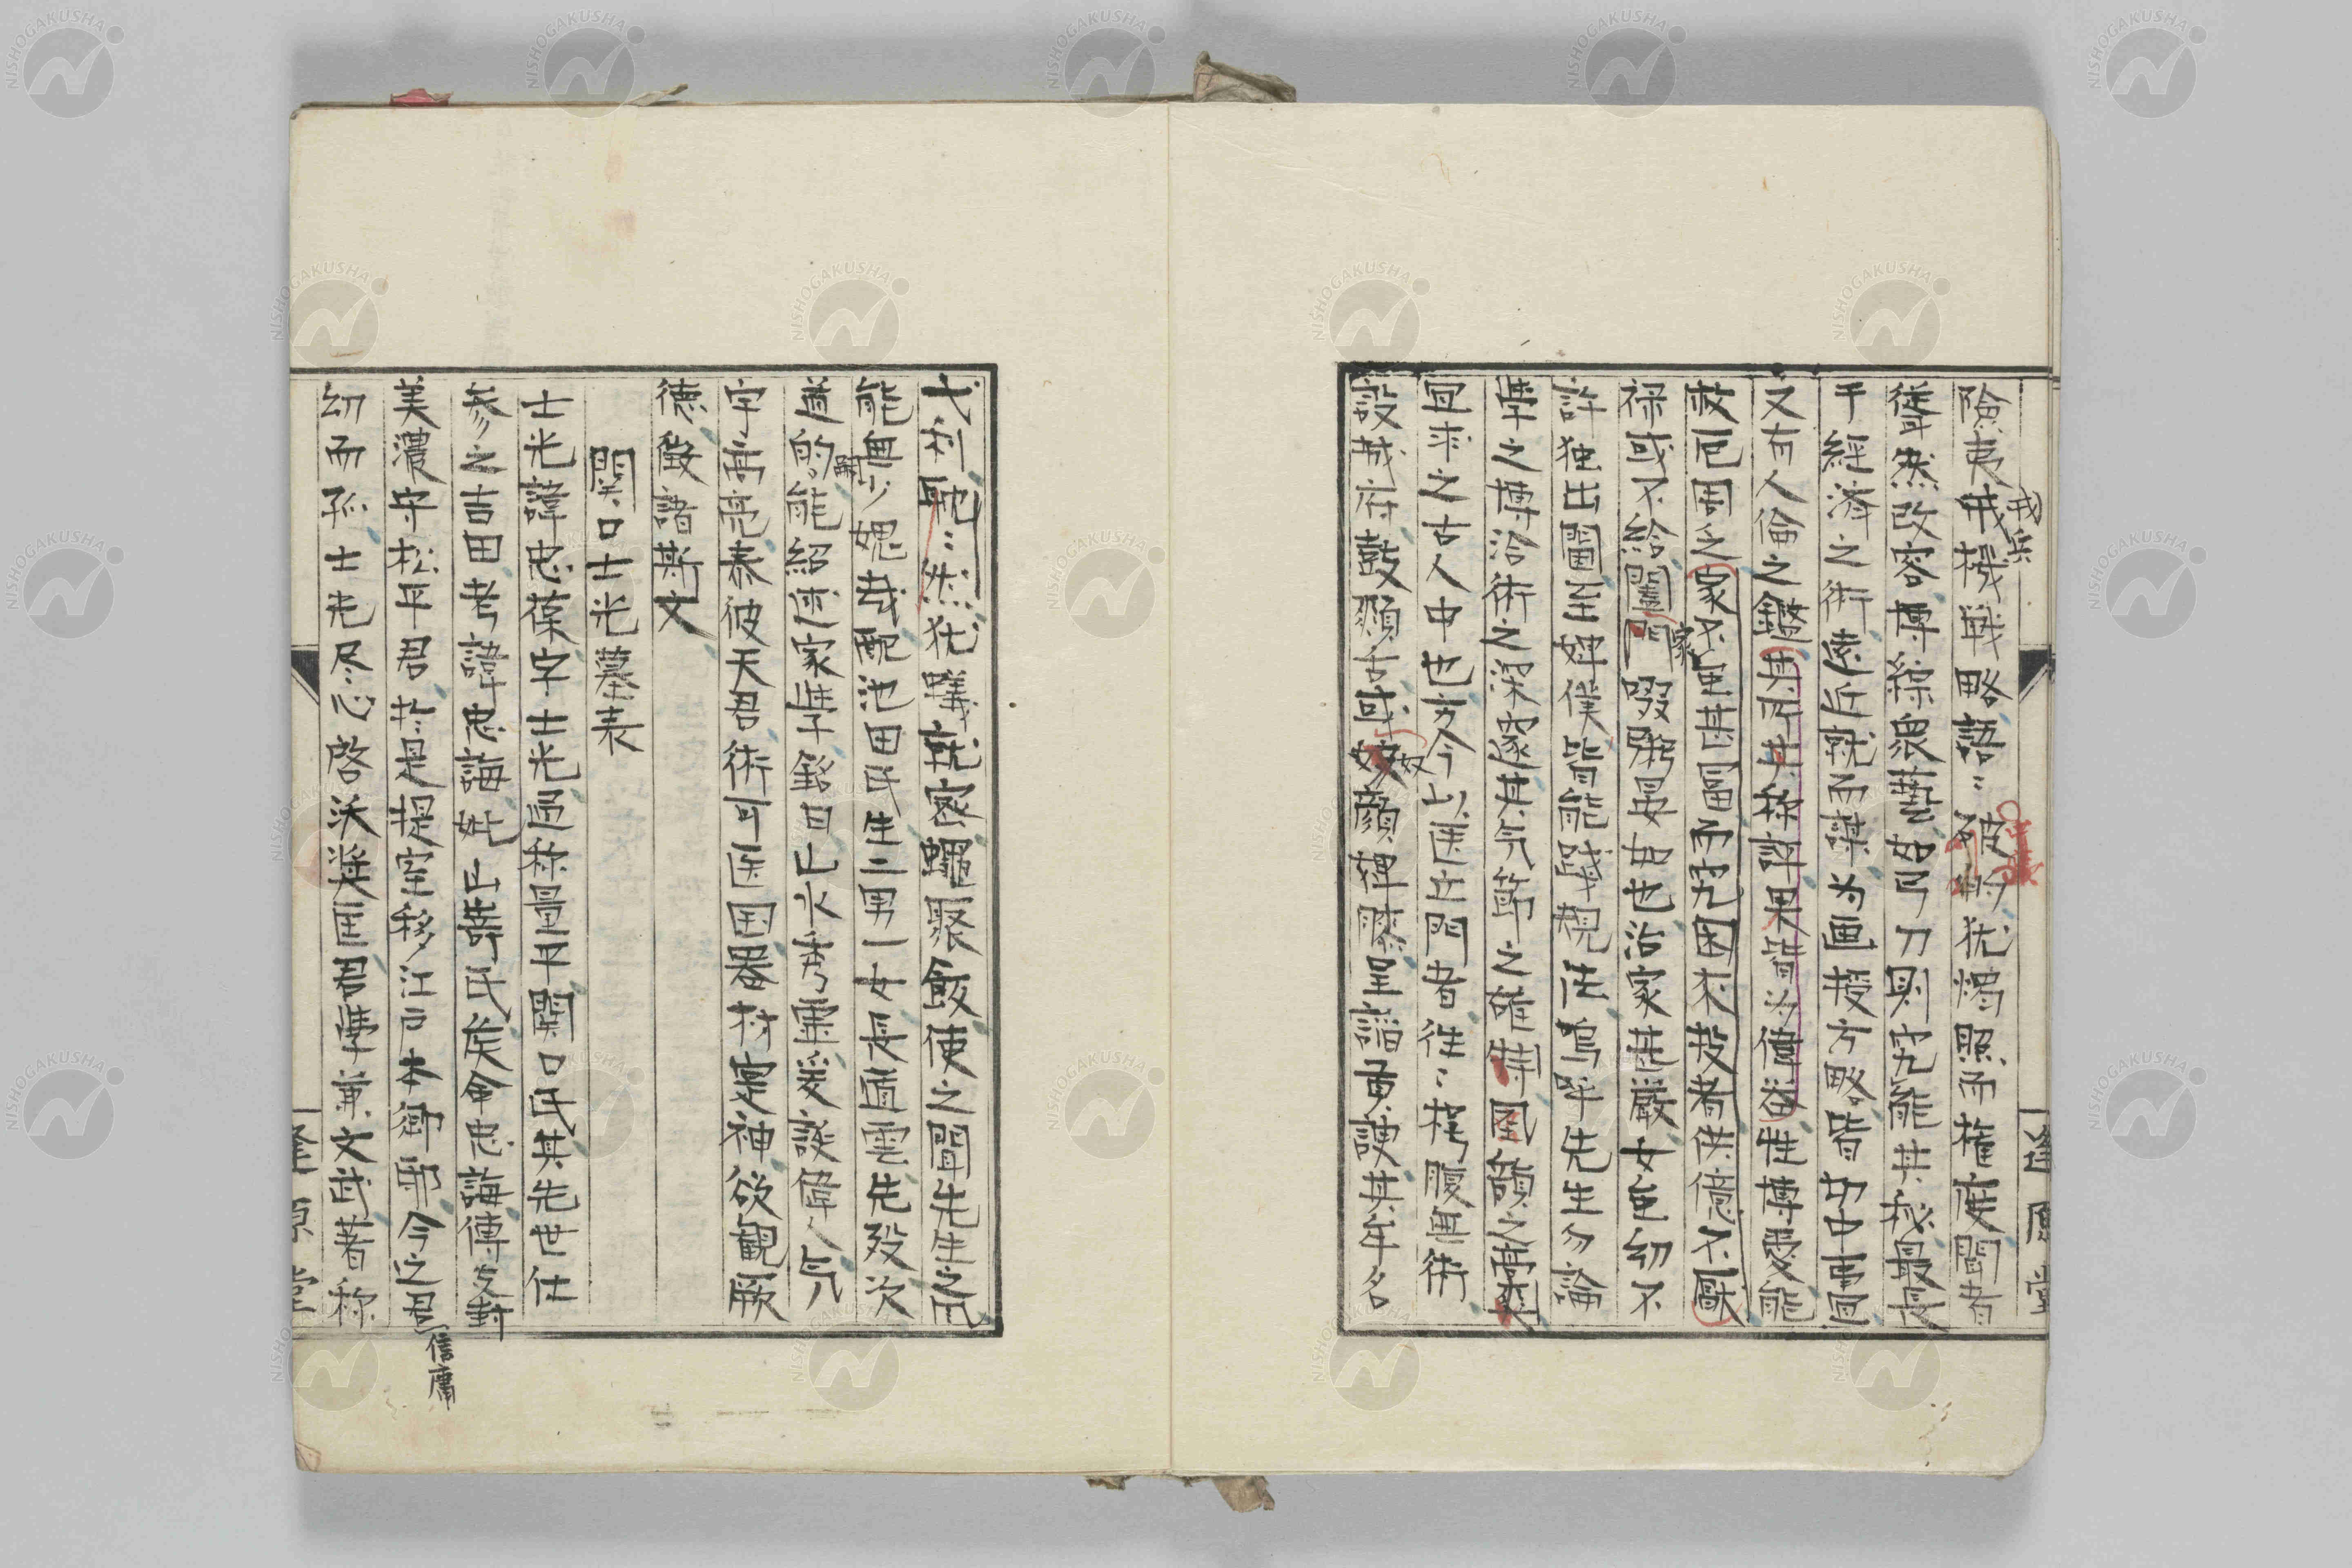 險夷我機戦略語〻彼的犹燭照而権度聞者
聳然改容博綜衆藝如弓刀則究能其秘最長
于經済之術遠近就而謀為画授方略皆切中事冝
又有人倫之鑑其所失称許果皆為偉器性博愛能
救厄周之家不重甚富而究困求救者供億不厭
禄或不給闔門啜粥晏如也治家甚厳女兒幼不
許独出閫至婢僕皆能踐規住嗚呼先生勿論
學之博治術之深邃其気節之能特国韻之高
冝求之古人中也方今以医在門者往〻枵腹無術
設城府鼓頰舌或奴顔婢膝呈謟面諛其年名
家
奴
逢原堂
弋利耽〻然犹蟻就蜜蠅聚飯使之聞先生之風
能無少媿哉配池田氏生二男一女長道雲先歿次
道的能紹述家學銘曰山水秀麗爰誕偉人気
宇高亮泰彼天君術可医国器材寔神欲観厥
德徵諸斯文
關口士光墓表
士光諱忠葉字士光過称量平關口氏其先世仕
参之吉田考諱忠誨妣山崎氏矦命忠誨傅支封
美濃守松平君於是提室移江戸本御邸今之君
信庸
幼而孤士光尽心啓沃奨匡君學兼文武著称
逢原堂